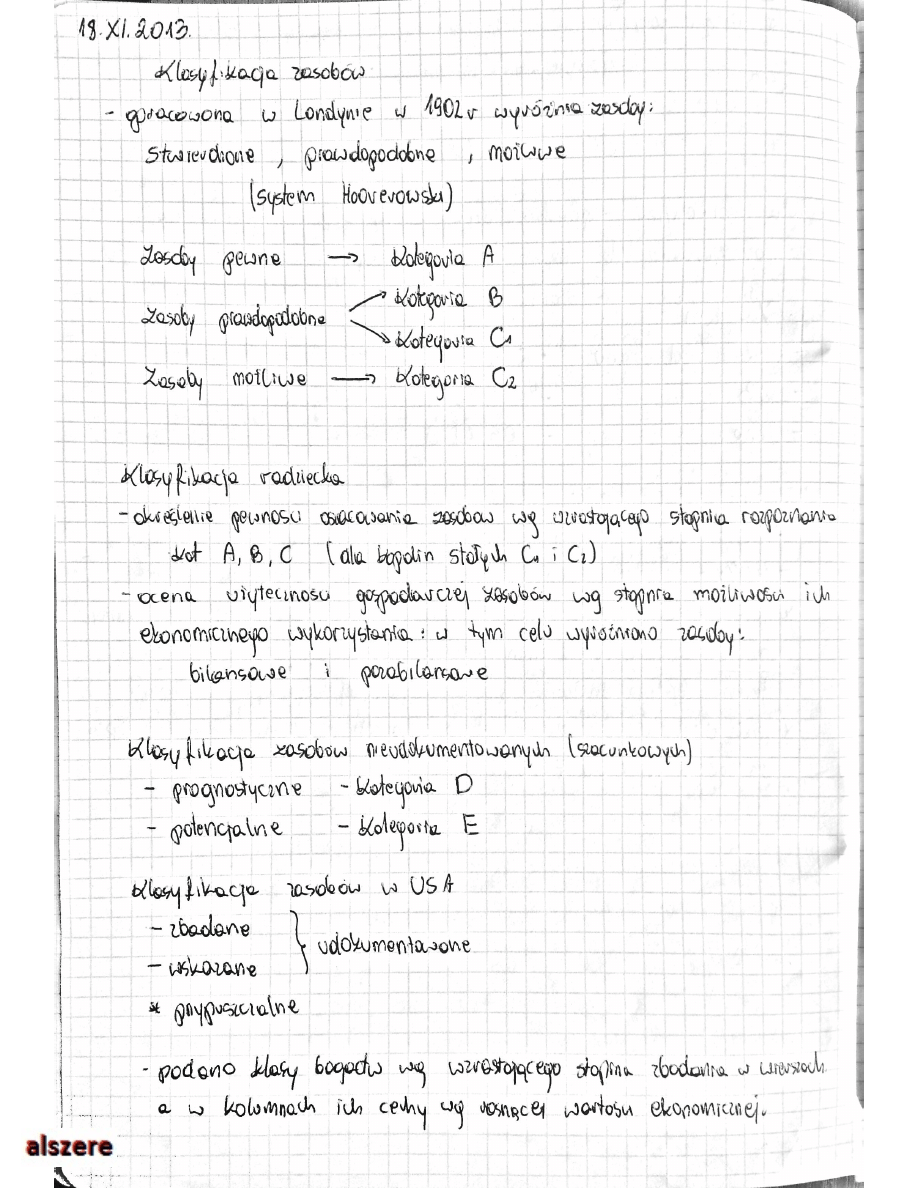 18.XI.2013.
Klasyfikacja zasobów
- opracowana w Londynie w 1902 r wyróżnia zasoby:
stwierdzone , prawdopodobne , możliwe
(system Hooverowski)
Zasoby pewne → Kategoria A
Kategoria B
Zasoby prawdopodobne
Kategoria C1
Zasoby możliwe → Kategoria C2
Klasyfikacja radziecka
- określenie pewności oszacowania zasobów wg wzrastającego stopnia rozpoznania
kat A, B, C (dla kopalin stałych C1 i C2)
- ocena użyteczności gospodarczej zasobów wg stopnia możliwości ich
ekonomicznego wykorzystania: w tym celu wyróżniono zasoby:
bilansowe i pozabilansowe
Klasyfikacja zasobów nieudokumentowanych (szacunkowych)
- prognostyczne - Kategoria D
- potencjalne - Kategoria E
Klasyfikacja zasobów w USA
- zbadane
} udokumentowane
- wskazane
* przypuszczalne
- podano klasy bogactw wg wzrastającego stopnia zbadania w wierszach
a w kolumnach ich cechy wg rosnącej wartości ekonomicznej.
alszere